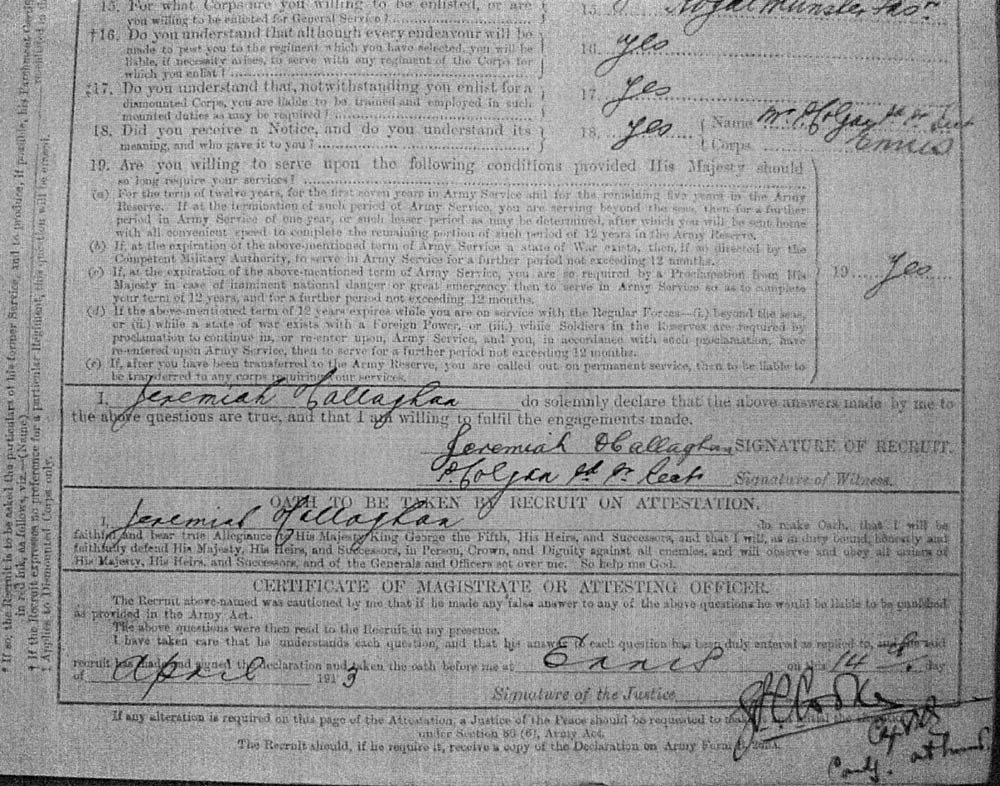 15. For what Corps are you willing to be enlisted, or are you willing to be enlisted for General Service?
15. Royal Munster Fusrs
†16. Do you understand that although every endeavour will be
made to post you to the regiment which you have selected, you will be
liable, if necessity arises, to serve with any regiment of the Corps for
which you enlist?
16. yes
‡17. Do you understand that, notwithstanding you enlist for a
dismounted Corps, you are liable to be trained and employed in such
mounted duties as may be required?
17. yes
18. Did you receive a Notice, and do you understand its
meaning, and who gave it to you?
18. yes { Name Mr
{ Corps Ennis
19. Are you willing to serve upon the following conditions provided His Majesty should
so long require your services?
(a) For the term of twelve years, for the first seven years in Army Service and for the remaining five years in the Army
Reserve. If at the termination of such period of Army Service, you are serving beyond the seas, then for a further
period in Army Service of one year, or such lesser period as may be determined, after which you will be sent home
with all convenient speed to complete the remaining portion of such period of 12 years in the Army Reserve.
(b) If, at the expiration of the above-mentioned term of Army Service a state of War exists, then, if so directed by the
Competent Military Authority, to serve in Army Service for a further period not exceeding 12 months.
(c) If, at the expiration of the above-mentioned term of Army Service, you are so required by a Proclamation from His
Majesty in case of imminent national danger or great emergency then to serve in Army Service so as to complete
your term of 12 years, and for a further period not exceeding 12 months.
(d) If the above-mentioned term of 12 years expires while you are on service with the Regular Forces—(i.) beyond the seas,
or (ii.) while a state of war exists with a Foreign Power, or (iii.) while Soldiers in the Reserves are required by
proclamation to continue in, or re-enter upon, Army Service, and you, in accordance with such proclamation, have
re-entered upon Army Service, then to serve for a further period not exceeding 12 months.
(e) If, after you have been transferred to the Army Reserve, you are called out on permanent service, then to be liable to
be transferred to any corps requiring your services.
19. yes
I, Jeremiah Callaghan do solemnly declare that the above answers made by me to
the above questions are true, and that I am willing to fulfil the engagements made.
Jeremiah OCallaghan SIGNATURE OF RECRUIT.
Signature of Witness.
OATH TO BE TAKEN BY RECRUIT ON ATTESTATION.
I, Jeremiah Callaghan do make Oath, that I will be
faithful and bear true Allegiance to His Majesty King George the Fifth, His Heirs, and Successors, and that I will, as in duty bound, honestly and
faithfully defend His Majesty, His Heirs, and Successors, in Person, Crown, and Dignity against all enemies, and will observe and obey all orders of
His Majesty, His Heirs, and Successors, and of the Generals and Officers set over me. So help me God.
CERTIFICATE OF MAGISTRATE OR ATTESTING OFFICER.
The Recruit above-named was cautioned by me that if he made any false answer to any of the above questions he would be liable to be punished
as provided in the Army Act.
The above questions were then read to the Recruit in my presence.
I have taken care that he understands each question, and that his answer to each question has been duly entered as replied to, and the said
recruit has made and signed the declaration and taken the oath before me at Ennis on this 14th day
of April 1913
Signature of the Justice
If any alteration is required on this page of the Attestation, a Justice of the Peace should be requested to make it and initial the alteration
under Section 80 (6), Army Act.
The Recruit should, if he require it, receive a copy of the Declaration on Army Form
* If so, the Recruit is to be asked the particulars of his former Service, and to produce, if possible, his Parchment
in red ink, as follows, viz.—(Name)
† If the Recruit expresses no preference for a particular Regiment, this question will be
‡ Applies to Dismounted Corps only.